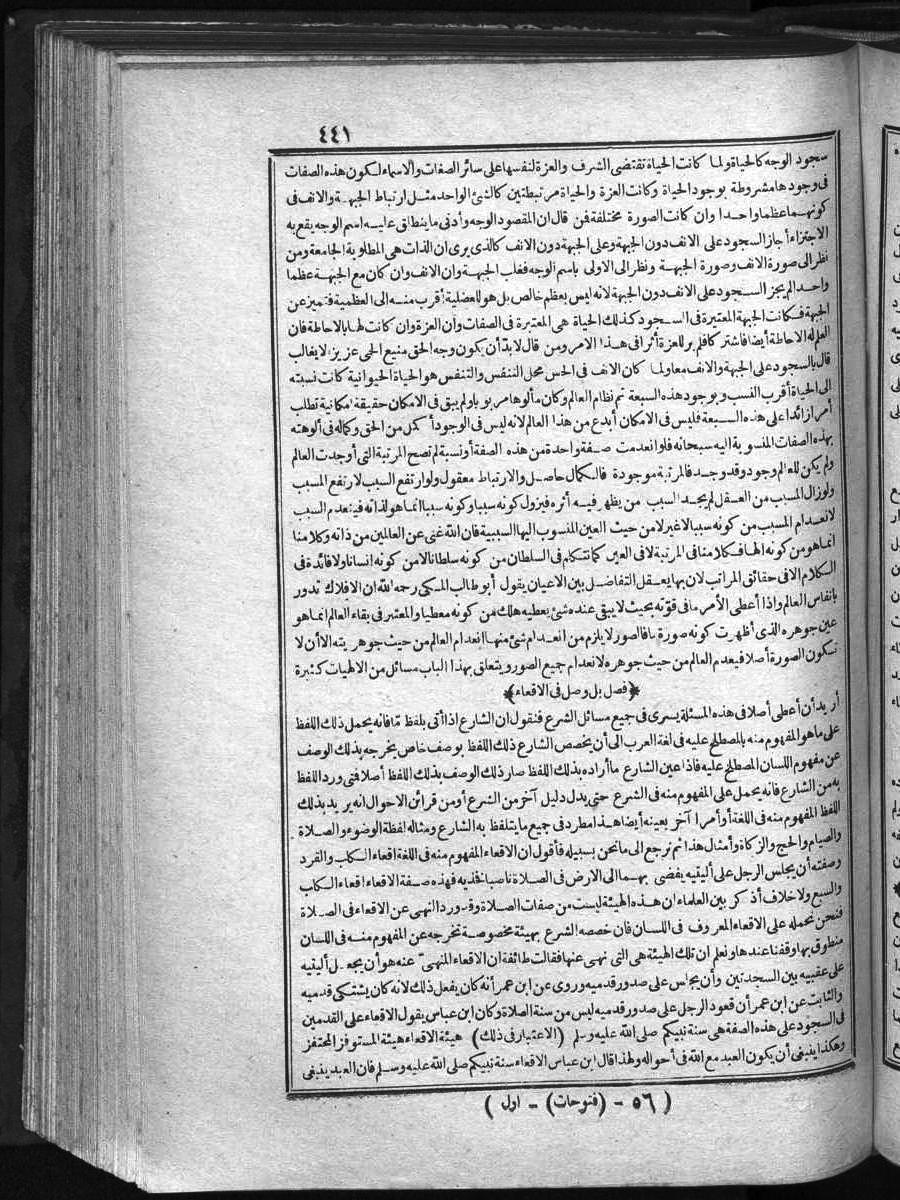 ٤٤١
سجود الوجه كالحياة ولما كانت الحياة تقتضى الشرف والعزة لنفسها على سائر الصفات والاسماء لكون هذه الصفات
فى وجودها مشروطة بوجود الحياة وكانت العزة والحياة مرتبطتين كالشئ الواحد مثل ارتباط الجبهة والانف فى
كونهما عظما واحدا وان كانت الصورة مختلفة فمن قال ان المقصود الوجه وأدنى ما ينطلق عليه اسم الوجه يقع به
الاجتزاء أجاز السجود على الانف دون الجبهة وعلى الجبهة دون الانف كالذى يرى ان الذات هى المطلوبة الجامعة ومن
نظر الى صورة الانف وصورة الجبهة ونظر الى الاولى باسم الوجه فغلب الجبهة وان الانف وان كان مع الجبهة عظما
واحدا لم يجز السجود على الانف دون الجبهة لانه ليس بعظم خالص بل هو للعضلية أقرب منه الى العظمية فتميز عن
الجبهة فكانت الجبهة المعتبرة فى السجود كذلك الحياة هى المعتبرة فى الصفات وان العزة وان كانت لها بالاحاطة فان
العلم له الاحاطة أيضا فاشتركا فلم ير للعزة أثرا فى هذا الامر ومن قال لا بد أن يكون وجه الحق منيع الحمى عزيز لا يغالب
قال بالسجود على الجبهة والانف معا ولما كان الانف فى الحس محل التنفس والتنفس هو الحياة الحيوانية كانت نسبته
الى الحياة أقرب النسب وبوجود هذه السبعة تم نظام العالم وكان مألوها مربوبا ولم يبق فى الامكان حقيقة امكانية تطلب
أمرا زائدا على هذه السبعة فليس فى الامكان أبدع من هذا العالم لانه ليس فى الوجود أكمل من الحق وكماله فى ألوهته
بهذه الصفات المنسوبة اليه سبحانه فلو انعدمت صفة واحدة من هذه الصفة أو نسبة لم تصح المرتبة التى أوجدت العالم
ولم يكن للعالم وجود وقد وجد فالمرتبة موجودة فالكمال حاصل والارتباط معقول ولو ارتفع السبب لارتفع المسبب
ولو زال المسبب من العقل لم يجد السبب من يظهر فيه أثره فيزول كونه سببا وكونه سببا انما هو لذاته فينعدم السبب
لانعدام المسبب من كونه سببا لا غير لا من حيث العين المنسوب اليها السببية فان الله غنى عن العالمين من ذاته وكلامنا
انما هو من كونه الها فكلامنا فى المرتبة لا فى العين كما نتكلم فى السلطان من كونه سلطانا لا من كونه انسانا ولا فائدة فى
الكلام الا فى حقائق المراتب لان بها يعقل التفاضل بين الاعيان يقول أبو طالب المكى رحمه الله ان الافلاك تدور
بانفاس العالم واذا أعطى الأمر ما فى قوته بحيث لا يبقى عنده شئ يعطيه هلك من كونه معطيا والمعتبر فى بقاء العالم انما هو
عين جوهره الذى أظهرت كونه صورة ما فالصور لا يلزم من انعدام شئ منها انعدام العالم من حيث جوهريته الا أن لا
تكون الصورة أصلا فيعدم العالم من حيث جوهره لانعدام جميع الصور ويتعلق بهذا الباب مسائل من الالهيات كثيرة
﴿فصل بل وصل فى الاقعاء﴾
أريد أن أعطى أصلا فى هذه المسئلة يسرى فى جميع مسائل الشرع فنقول ان الشارع اذا أتى بلفظ ما فانه يحمل ذلك اللفظ
على ما هو المفهوم منه بالمصطلح عليه فى لغة العرب الى أن يخصص الشارع ذلك اللفظ بوصف خاص يخرجه بذلك الوصف
عن مفهوم اللسان المصطلح عليه فاذا عين الشارع ما أراده بذلك اللفظ صار ذلك الوصف بذلك اللفظ أصلا فتى ورد اللفظ
به من الشارع فانه يحمل على المفهوم منه فى الشرع حتى يدل دليل آخر من الشرع أو من قرائن الاحوال انه يريد بذلك
اللفظ المفهوم منه فى اللغة أو أمرا آخر بعينه أيضا هذا مطرد فى جميع ما يتلفظ به الشارع ومثاله لفظة الوضوء والصلاة
والصيام والحج والزكاة وأمثال هذا ثم نرجع الى ما نحن بسبيله فأقول ان الاقعاء المفهوم منه فى اللغة اقعاء الكلب والقرد
وصفته أن يجلس الرجل على أليتيه يفضى بهما الى الارض فى الصلاة ناصبا فخذيه فهذه صفة الاقعاء اقعاء الكلب
والسبع ولا خلاف أذكر بين العلماء ان هذه الهيئة ليست من صفات الصلاة وقد ورد النهى عن الاقعاء فى الصلاة
فنحن نحمله على الاقعاء المعروف فى اللسان فان خصصه الشرع بهيئة مخصوصة تخرجه عن المفهوم منه فى اللسان
منطوق بها وقفنا عندها ونعلم ان تلك الهيئة هى التى نهى عنها فقالت طائفة ان الاقعاء المنهى عنه هو أن يجعل أليتيه
على عقبيه بين السجدتين وأن يجلس على صدور قدميه وروى عن ابن عمر أنه كان يفعل ذلك لانه كان يشتكى قدميه
والثابت عن ابن عمر أن قعود الرجل على صدور قدميه ليس من سنة الصلاة وكان ابن عباس يقول الاقعاء على القدمين
فى السجود على هذه الصفة هى سنة نبيكم صلى الله عليه وسلم (الاعتبار فى ذلك) هيئة الاقعاء هيئة المستوفز المحتفز
وهكذا ينبغى أن يكون العبد مع الله فى أحواله ولهذا قال ابن عباس الاقعاء سنة نبيكم صلى الله عليه وسلم فان العبد ينبغى
( ٥٦ - (فتوحات) - اول )